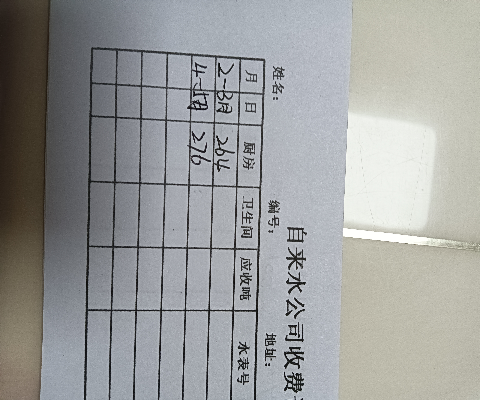 自来水公司收费
姓名： 编号： 地址：
月 日 厨房 卫生间 应收吨 水表号
2-3月 264
4-5月 276